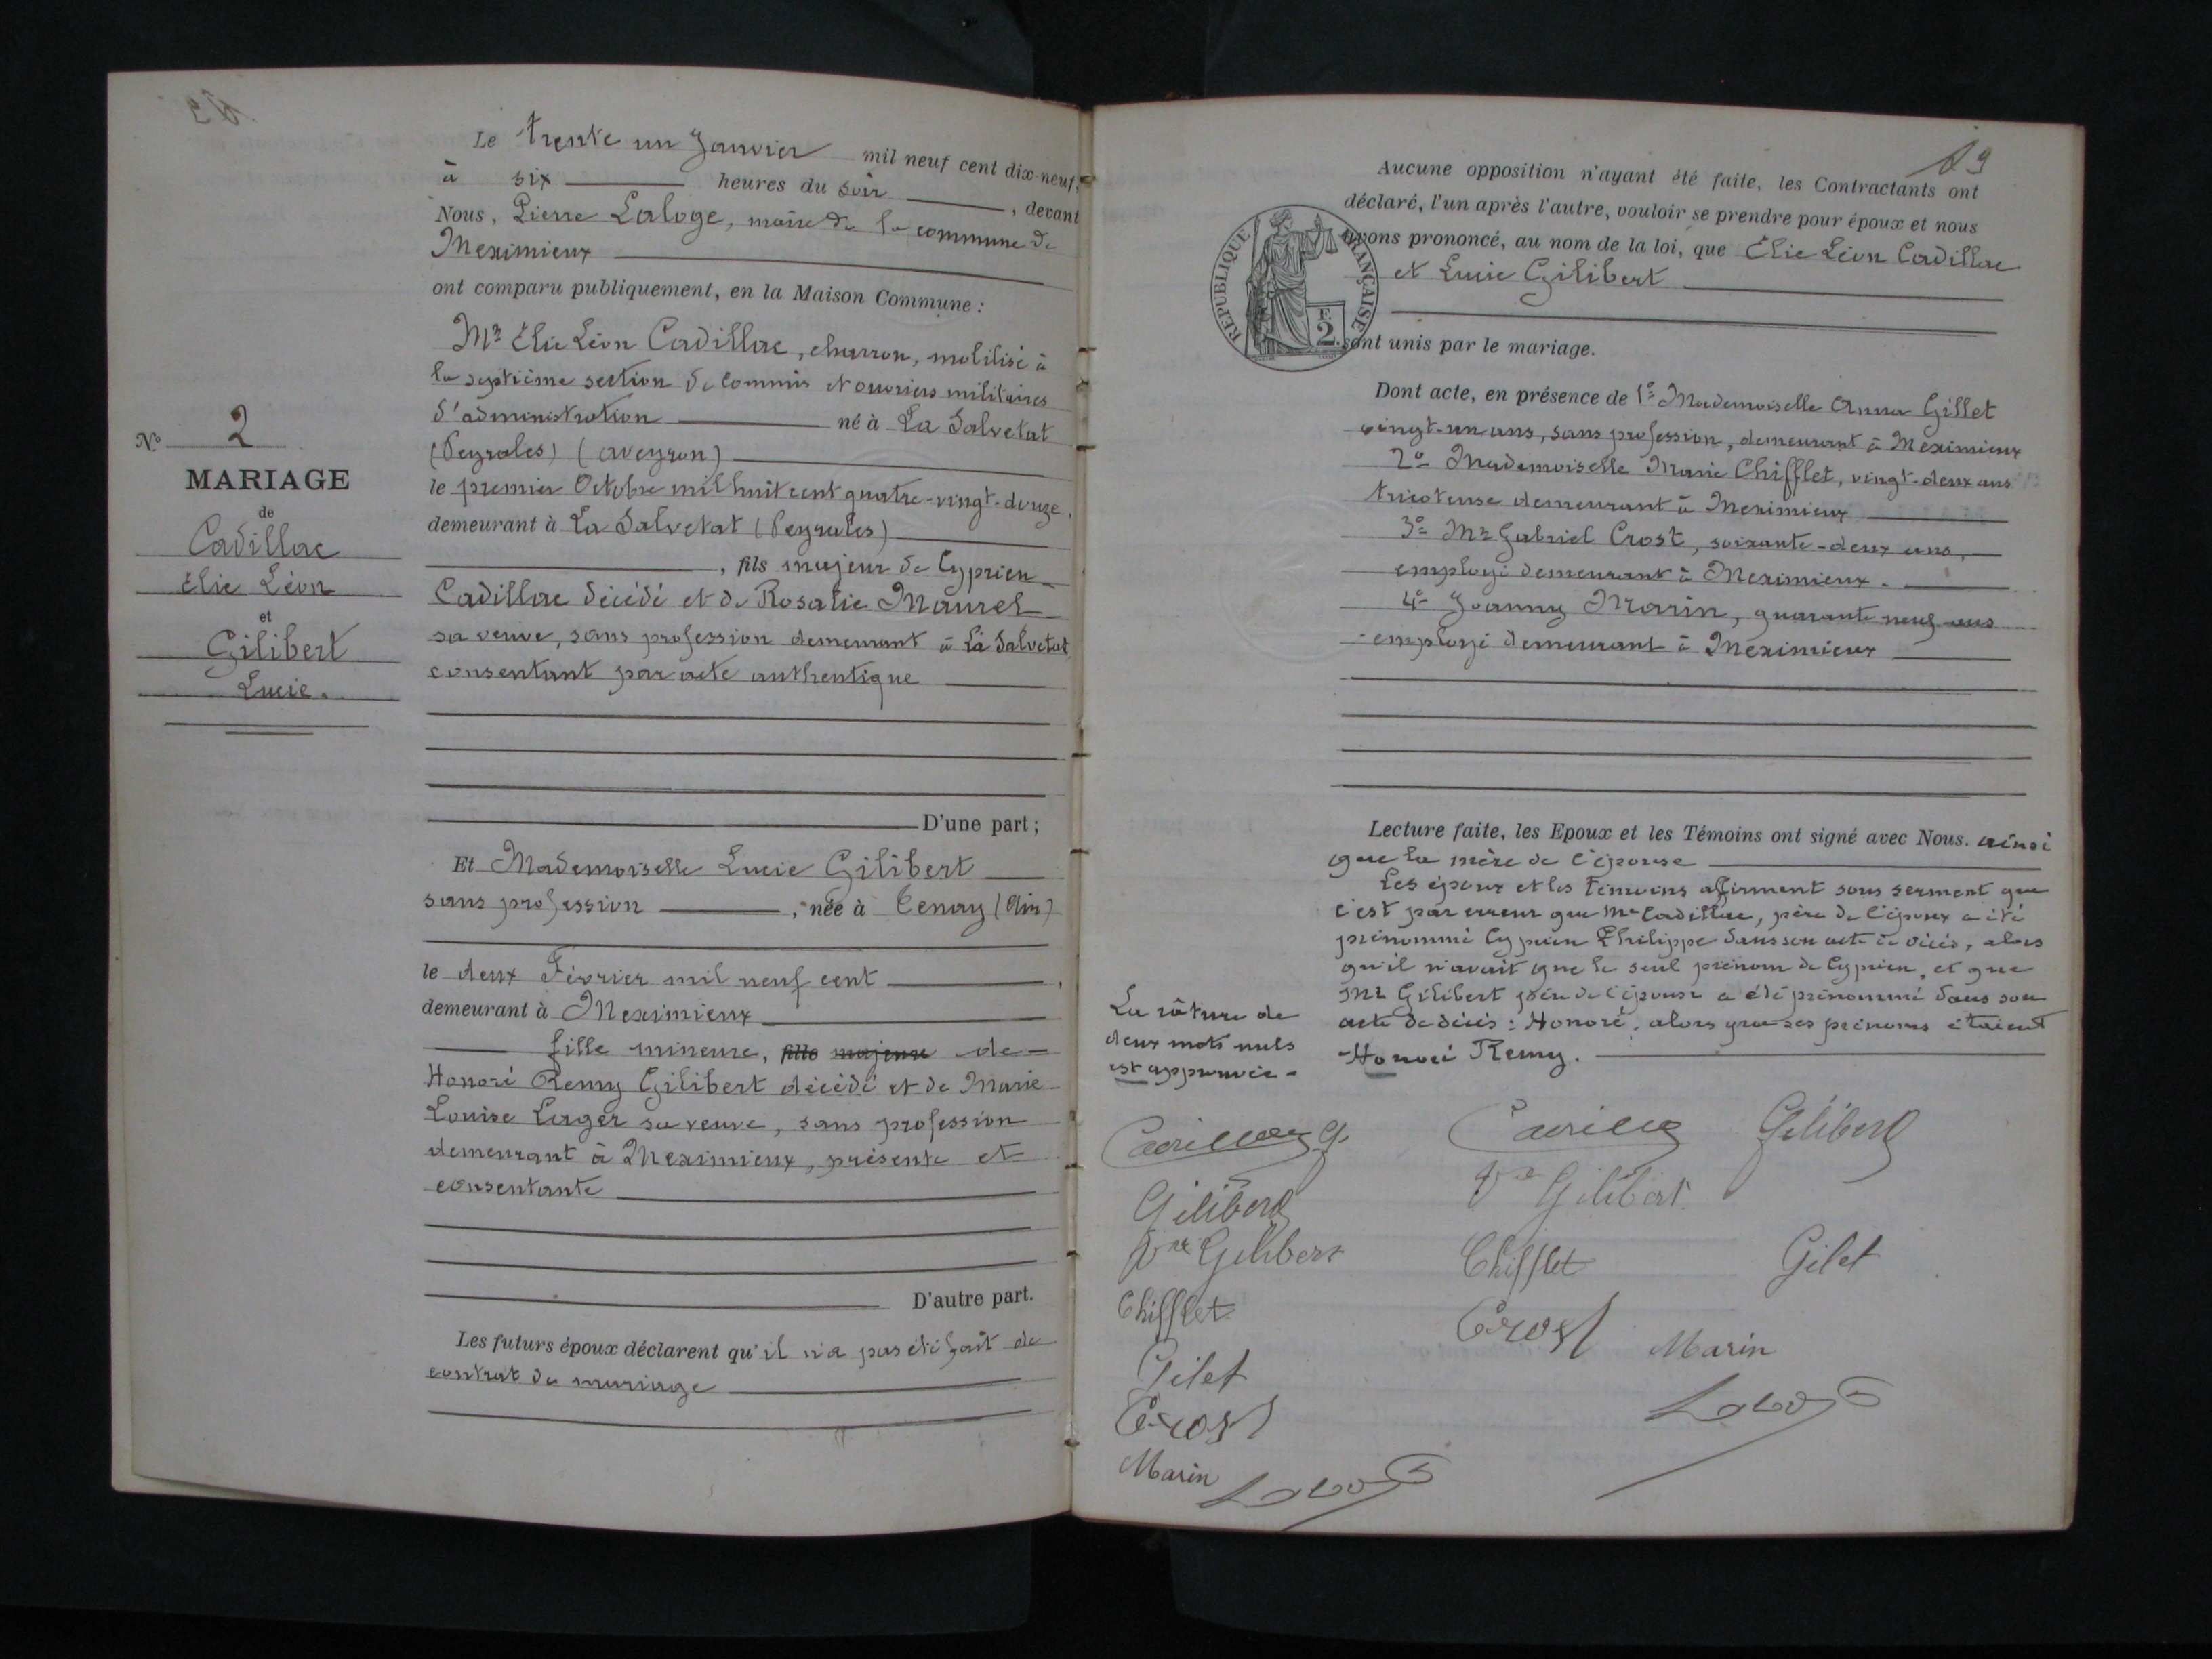 Le trente un Janvier mil neuf cent dix-neuf,
à six heures du soir, devant
Nous, Pierre Laloge, maire de la commune de
Meximieux
ont comparu publiquement, en la Maison Commune :
Mr Élie Léon Cadillac, charron, mobilisé à
la septième section de commis et ouvriers militaires
d'administration né à La Salvetat
(Peyralès) (Aveyron)
le premier Octobre mil huit cent quatre-vingt-douze,
demeurant à La Salvetat (Peyralès)
, fils majeur de Cyprien
Cadillac décédé et de Rosalie Maurel
sa veuve, sans profession demeurant à La Salvetat
consentant par acte authentique
D'une part ;
No 2
MARIAGE
de
Cadillac
Élie Léon
et
Gilibert
Lucie.
Et Mademoiselle Lucie Gilibert
sans profession, née à Tenay (Ain)
le deux Février mil neuf cent,
demeurant à Meximieux
fille mineure, fille majeure de
Honoré Remy Gilibert décédé et de Marie
Louise Lager sa veuve, sans profession
demeurant à Meximieux, présente et
consentante
D'autre part.
Les futurs époux déclarent qu'il n'a pas été fait de
contrat de mariage
19
Aucune opposition n'ayant été faite, les Contractants ont
déclaré, l'un après l'autre, vouloir se prendre pour époux et nous
avons prononcé, au nom de la loi, que Élie Léon Cadillac
et Lucie Gilibert
RÉPUBLIQUE FRANÇAISE
F.
2.
sont unis par le mariage.
Dont acte, en présence de 1o Mademoiselle Anna Gillet
vingt-un ans, sans profession, demeurant à Meximieux
2o Mademoiselle Marie Chifflet, vingt-deux ans
tricoteuse demeurant à Meximieux
3o Mr Gabriel Crost, soixante-deux ans,
employé demeurant à Meximieux.
4o Joanny Marin, quarante neuf ans
employé demeurant à Meximieux
Lecture faite, les Epoux et les Témoins ont signé avec Nous. ainsi
que la mère de l'épouse
Les époux et les témoins affirment sous serment que
c'est par erreur que Mr Cadillac, père de l'époux a été
prénommé Cyprien Philippe dans son acte de décès, alors
qu'il n'avait que le seul prénom de Cyprien, et que
Mr Gilibert père de l'épouse a été prénommé dans son
acte de décès : Honoré, alors que ses prénoms étaient
Honoré Remy.
La râture de
deux mots nuls
est approuvée -
Gilibert
Vve Gilibert
Chifflet
Gilet
Crost
Marin
Gilibert
Vve Gilibert
Chifflet Gilet
Crost Marin